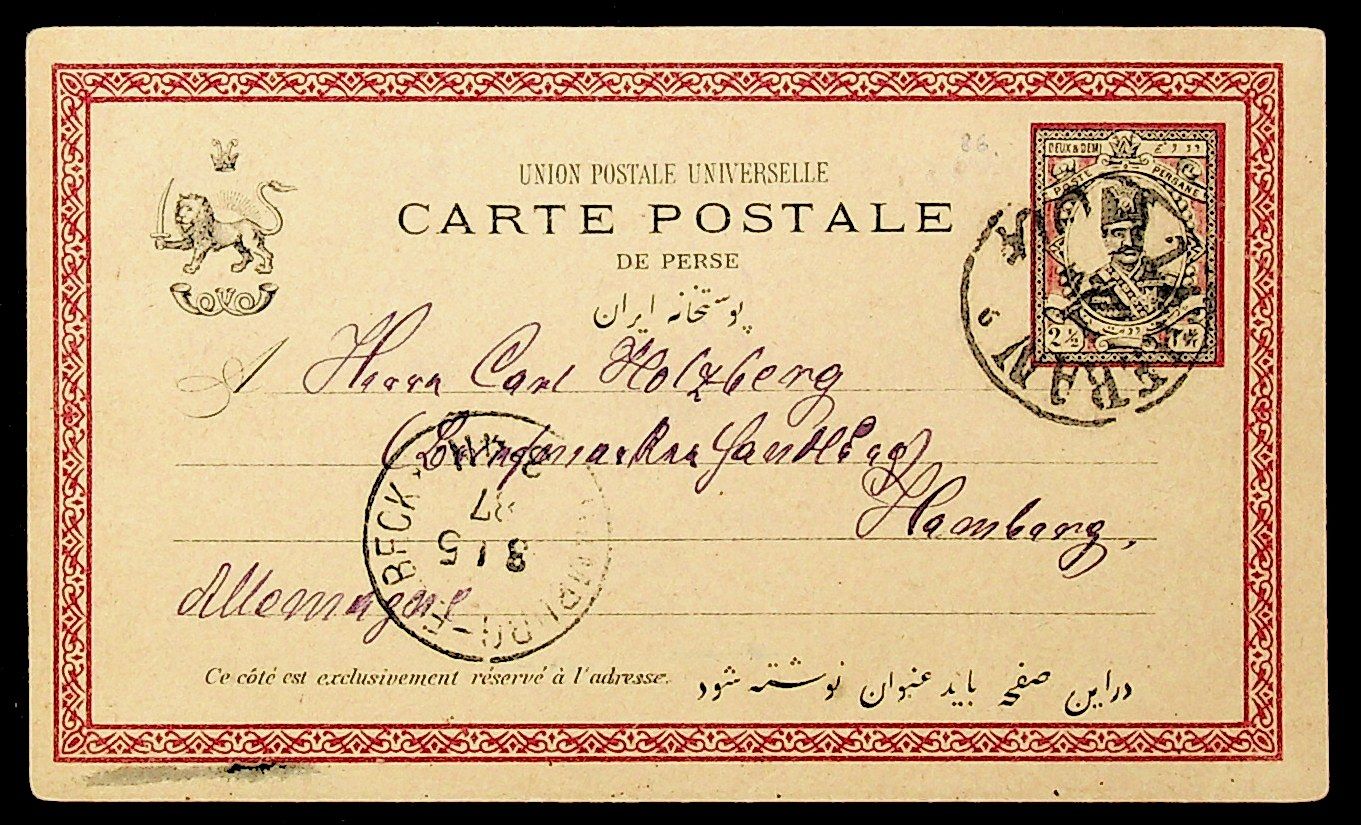 86.
UNION POSTALE UNIVERSELLE
CARTE POSTALE
DE PERSE
پوستخانه ایران
DEUX & DEMI
POSTE PERSANE
2 ½
A Herrn Carl Holzberg
(Briefmarken Handlung)
Hamburg,
Allemagne
BECK
87
8 / 5
Ce côté est exclusivement réservé à l'adresse.
دراین صفحه باید عنوان نوشته شود